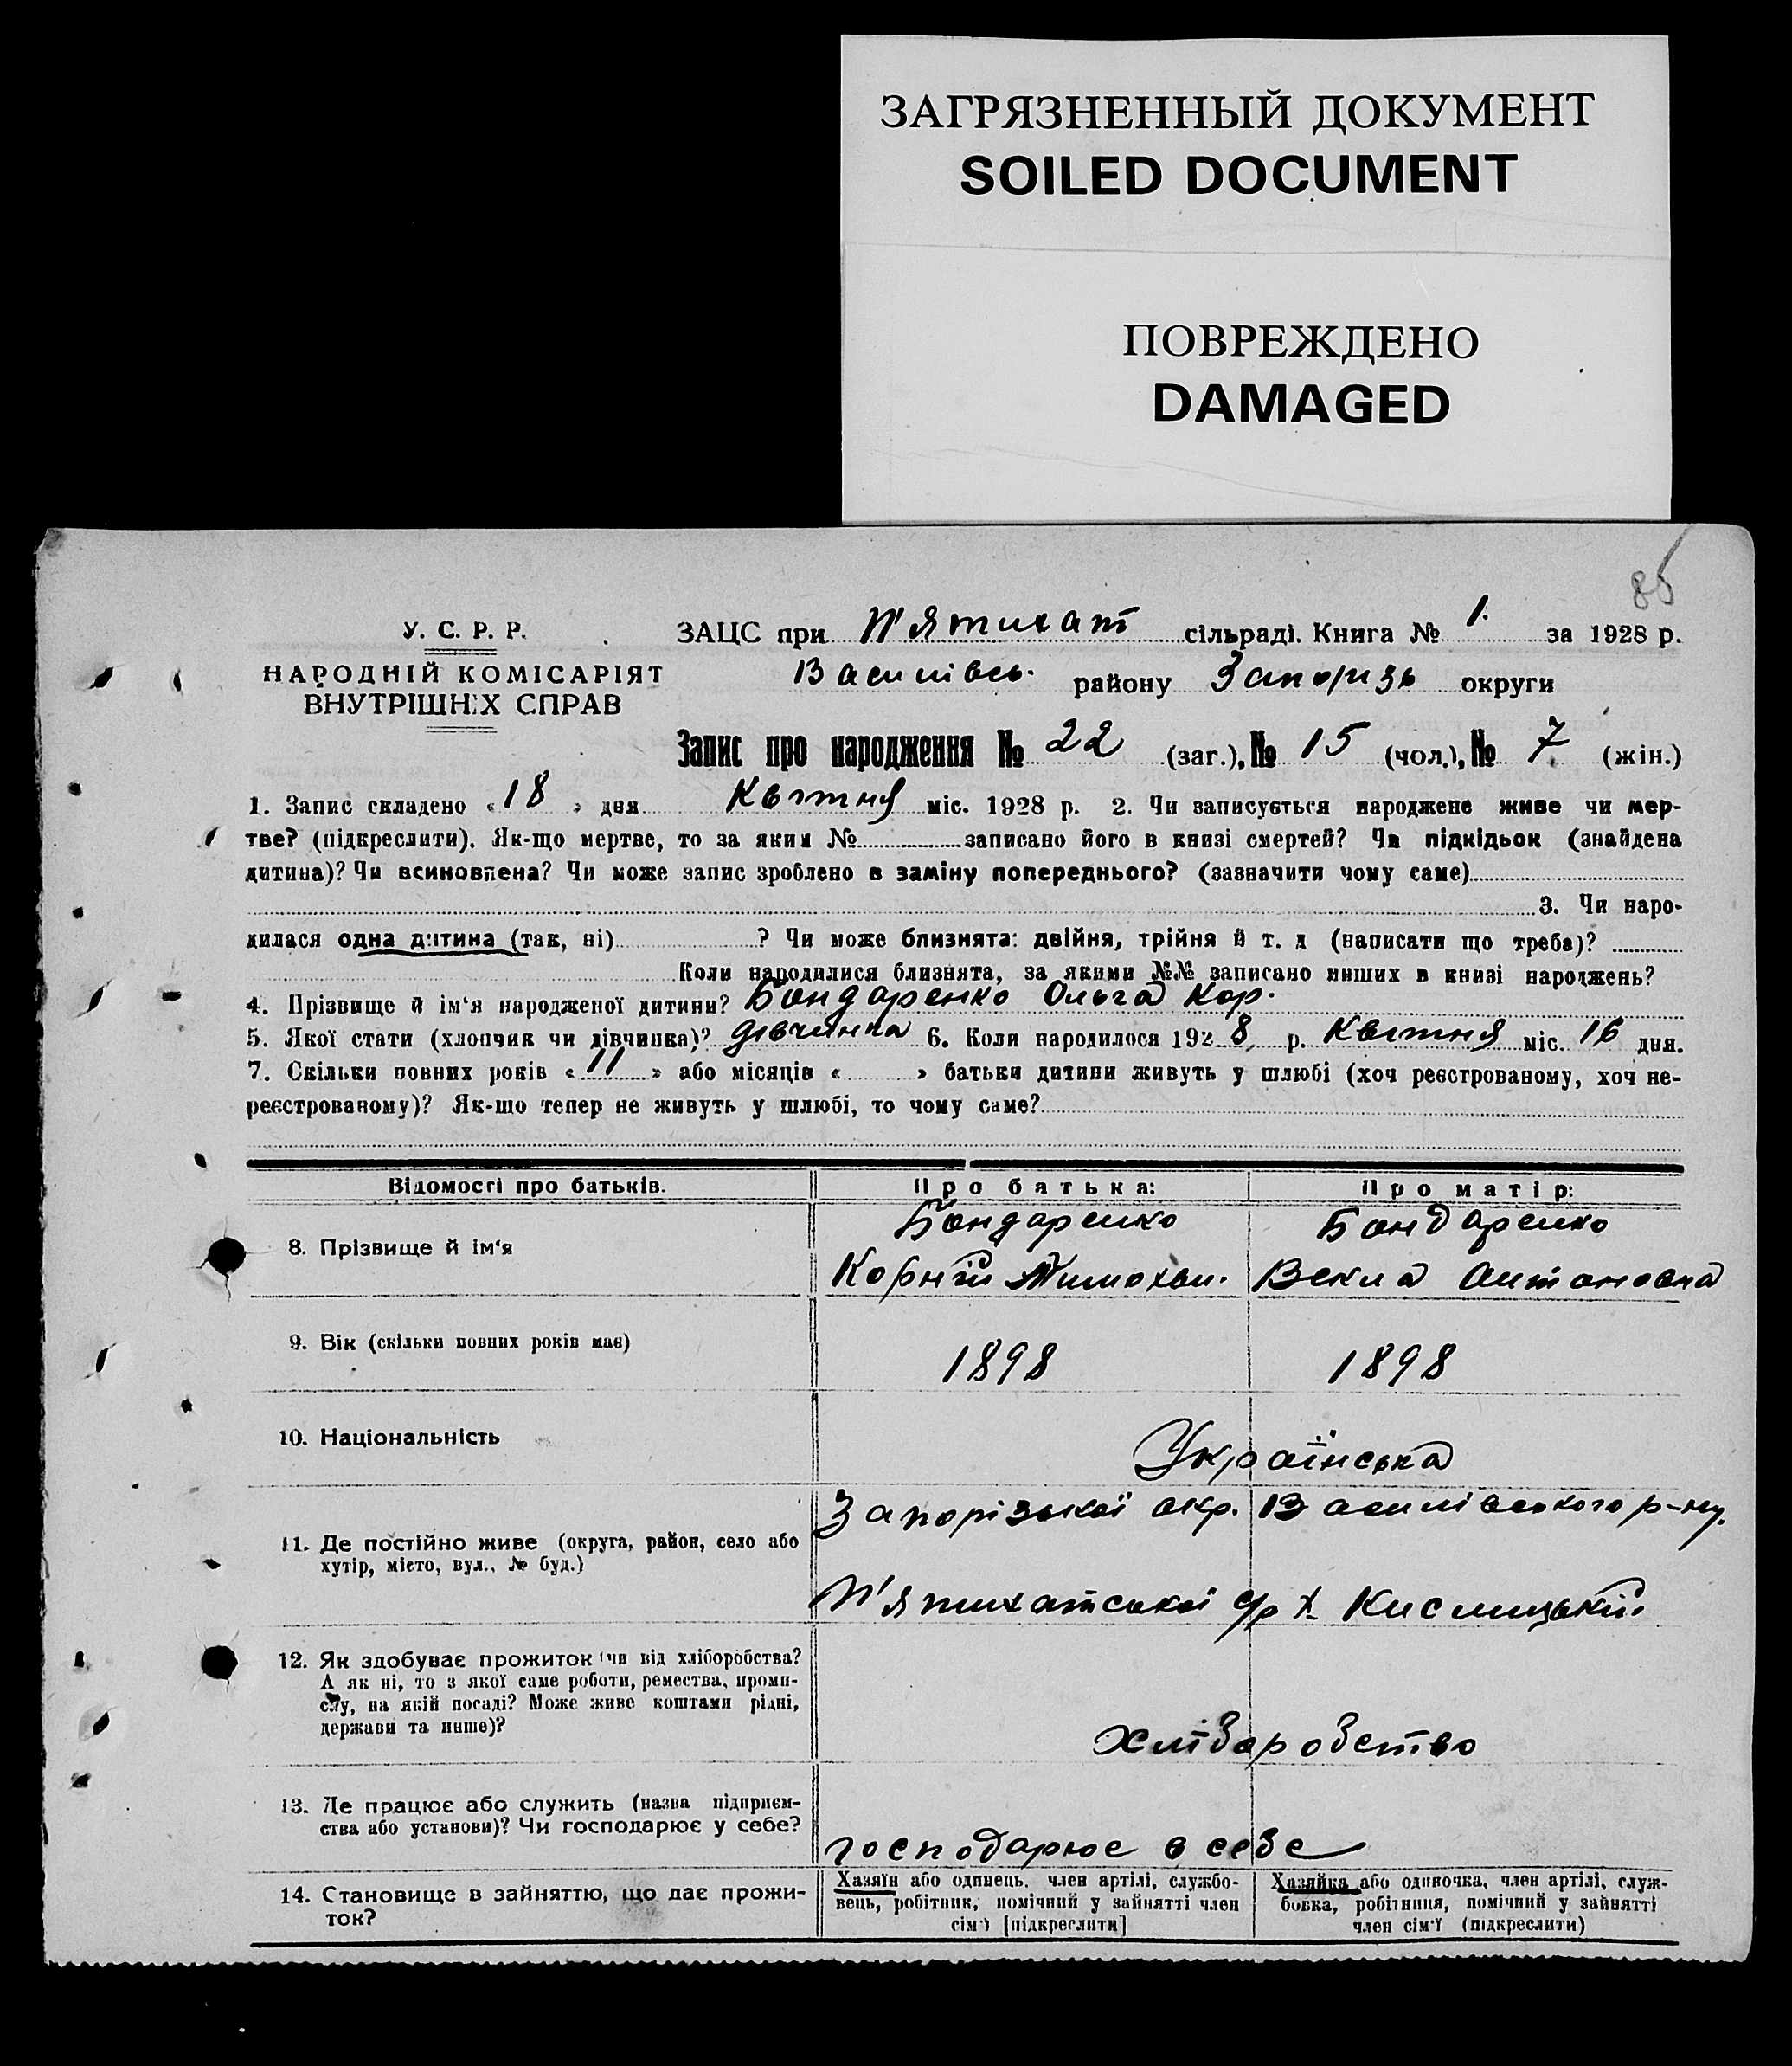 ЗАГРЯЗНЕННЫЙ ДОКУМЕНТ
SOILED DOCUMENT
ПОВРЕЖДЕНО
DAMAGED
85
У. С. Р. Р.
НАРОДНІЙ КОМІСАРІЯТ
ВНУТРІШНІХ СПРАВ
ЗАЦС при П'ятихат сільраді. Книга № 1. за 1928 р.
Василівсь. району Запорізь округи
Запис про народження № 22 (заг.), № 15 (чол.), № 7. (жін.)
1. Запис складено «18» дня Квітня міс. 1928 р. 2. Чи записується народжене живе чи мер-
тве? (підкреслити). Як-що мертве, то за яким № записано його в книзі смертей? Чи підкідьок (знайдена
дитина)? Чи всиновлена? Чи може запис зроблено в заміну попереднього? (зазначити чому саме)
3. Чи наро-
дилася одна дитина (так, ні) ? Чи може близнята: двійня, трійня й т. д (написати що треба)?
Коли народилися близнята, за якими №№ записано инших в книзі народжень?
4. Прізвище й ім‘я народженої дитини? Бондаренко Ольга Кор.
5. Якої стати (хлопчик чи дівчинка)? дівчинка 6. Коли народилося 1928, р. Квітня міс. 16 дня.
7. Скільки повних років «11» або місяців « » батьки дитини живуть у шлюбі (хоч реєстрованому, хоч не-
реєстрованому)? Як-що тепер не живуть у шлюбі, то чому саме?
Відомості про батьків. Про батька: Про матір:
8. Прізвище й ім‘я
Бондаренко
Корній Тимохви.
Бондаренко
Векла Антоновна
9. Вік (скільки повних років має) 1898 1898
10. Національність Українська
11. Де постійно живе (округа, район, село або
хутір, місто, вул., № буд.)
Запорізької окр. Василівського р-ну.
П'ятихатської с/р х. Кислицький
12. Як здобуває прожиток (чи від хліборобства?
А як ні, то з якої саме роботи, ремества, проми-
слу, на якій посаді? Може живе коштами рідні,
держави та инше)?
хліборобство
13. Де працює або служить (назва підприєм-
ства або установи)? Чи господарює у себе?
господарює в себе
14. Становище в зайняттю, що дає прожи-
ток?
Хазяїн або одинець, член артілі, службо-
вець, робітник, помічний у зайнятті член
сім‘ї [підкреслити]
Хазяйка або одиночка, член артілі, служ-
бовка, робітниця, помічний у зайнятті
член сім‘ї (підкреслити)